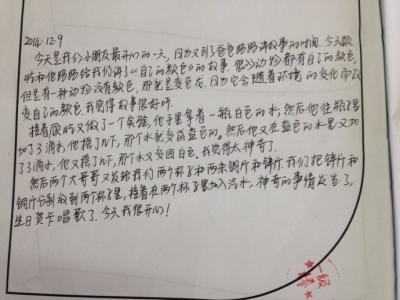 2014.12.9
今天是我们小朋友最开心的一天,因为又到了爸爸妈妈讲故事的时间。今天欧
和他妈妈给我们讲了《自己的颜色》的故事。很多动物都有自己的颜色,
但是有一种动物没有颜色,那就是变色龙。因为它会随着环境的变化而改
变自己的颜色。我觉得故事很好听。
接着欧 又做了一个实验,他手里拿着一瓶白色的水,然后他往瓶子里
加了3滴水,他又摇了几下,那个水就变成蓝色的。然后他又在蓝色的水里又加
了3滴水,他又摇了几下,那个水又变回白色,我觉得太神奇了。
然后两个大哥哥又发给我们两个杯子和两条铜片和锌片。我们把锌片和
铜片分别放到两个杯子里,接着在两个杯子里加入汽水。神奇的事情发生了,
生日贺卡唱歌了。今天我很开心!